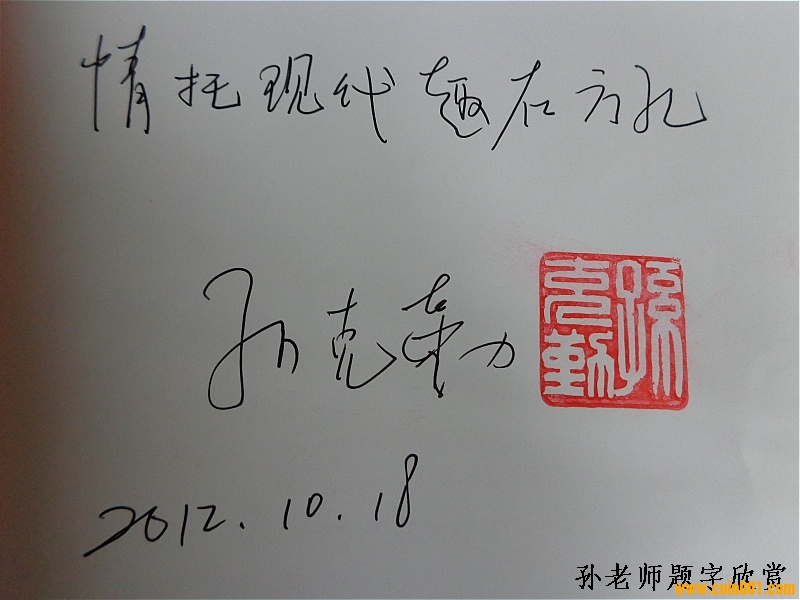 情托现代 趣在方孔
孙克勤
孫克勤
2012.10.18
孙老师题字欣赏